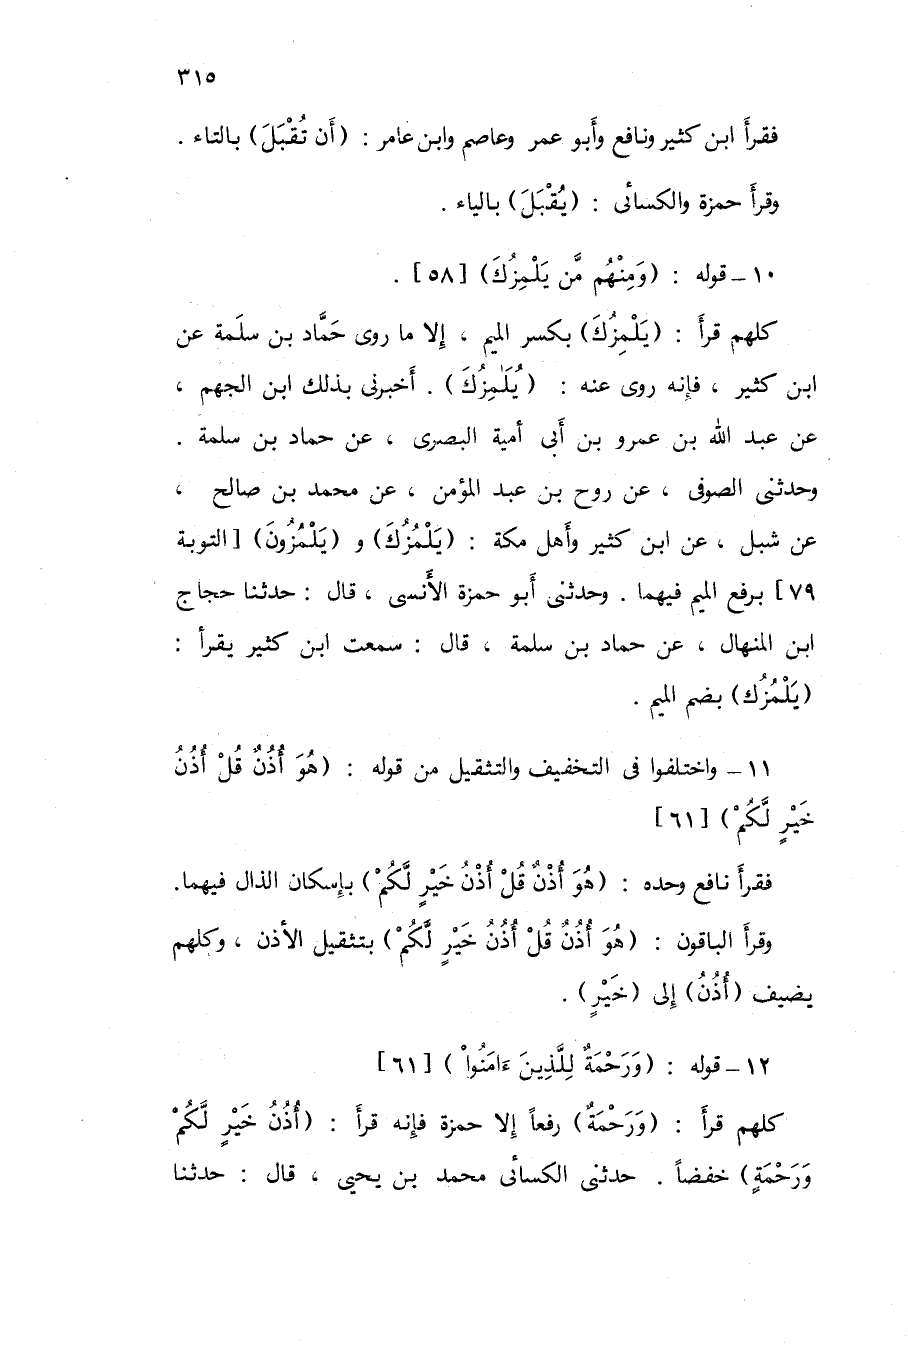 ٣١٥
فقرأ ابن كثير ونافع وأبو عمر وعاصم وابن عامر : (أَن تُقْبَلَ) بالتاء .
وقرأ حمزة والكسائى : (يُقْبَلَ) بالياء .
١٠ ــ قوله : (وَمِنْهُم مَّن يَلْمِزُكَ) [٥٨] .
كلهم قرأ : (يَلْمِزُكَ) بكسر الميم ، إلا ما روى حَمَّاد بن سلَمة عن
ابن كثير ، فإنه روى عنه : (يُلَٰمِزُكَ) . أخبرنى بذلك ابن الجهم ،
عن عبد الله بن عمرو بن أبى أمية البصرى ، عن حماد بن سلمة .
وحدثنى الصوفى ، عن روح بن عبد المؤمن ، عن محمد بن صالح ،
عن شبل ، عن ابن كثير وأهل مكة : (يَلْمُزُكَ) و (يَلْمُزُونَ) [التوبة
٧٩] برفع الميم فيهما . وحدثنى أبو حمزة الأَنسى ، قال : حدثنا حجاج
ابن المنهال ، عن حماد بن سلمة ، قال : سمعت ابن كثير يقرأ :
(يَلْمُزُك) بضم الميم .
١١ ــ واختلفوا فى التخفيف والتثقيل من قوله : (هُوَ أُذُنٌ قُلْ أُذُنُ
خَيْرٍ لَّكُمْ) [٦١]
فقرأ نافع وحده : (هُوَ أُذْنٌ قُلْ أُذْنُ خَيْرٍ لَّكُمْ) بإسكان الذال فيهما.
وقرأ الباقون : (هُوَ أُذُنٌ قُلْ أُذُنُ خَيْرٍ لَّكُمْ) بتثقيل الأذن ، وكلهم
يضيف (أُذُنُ) إلى (خَيْرٍ) .
١٢ ــ قوله : (وَرَحْمَةٌ لِلَّذِينَ ءَامَنُواْ) [٦١]
كلهم قرأ : (وَرَحْمَةٌ) رفعاً إلا حمزة فإنه قرأ : (أُذُنُ خَيْرٍ لَّكُمْ
وَرَحْمَةٍ) خفضاً . حدثنى الكسائى محمد بن يحيى ، قال : حدثنا